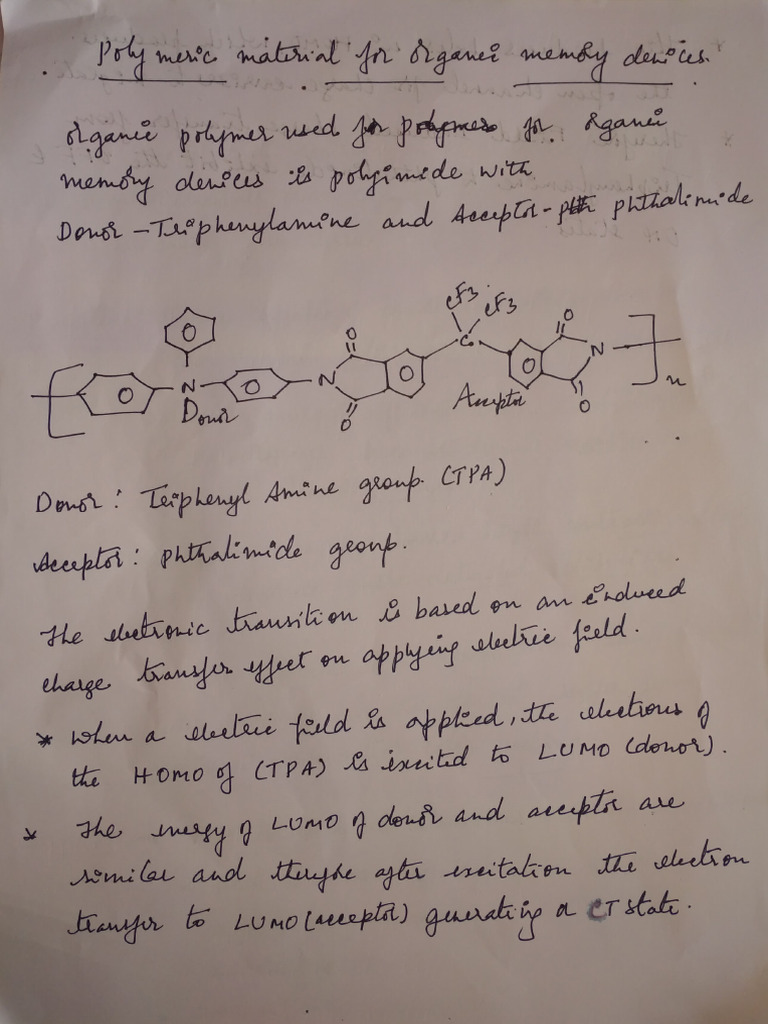 Polymeric material for organic memory devices.
organic polymer used for polymer for organic
memory devices is polyimide with
Donor - Triphenylamine and Acceptor - phthalimide
CF3 CF3
O O
C
N N N
Donor Acceptor
O O
n
Donor : Triphenyl Amine group. (TPA)
Acceptor : phthalimide group.
The electronic transition is based on an induced
charge transfer effect on applying electric field.
* when a electric field is applied, the electrons of
the HOMO of (TPA) is excited to LUMO (donor).
* The energy of LUMO of donor and acceptor are
similar and therefore after excitation the electron
transfer to LUMO (acceptor) generating a CT state.